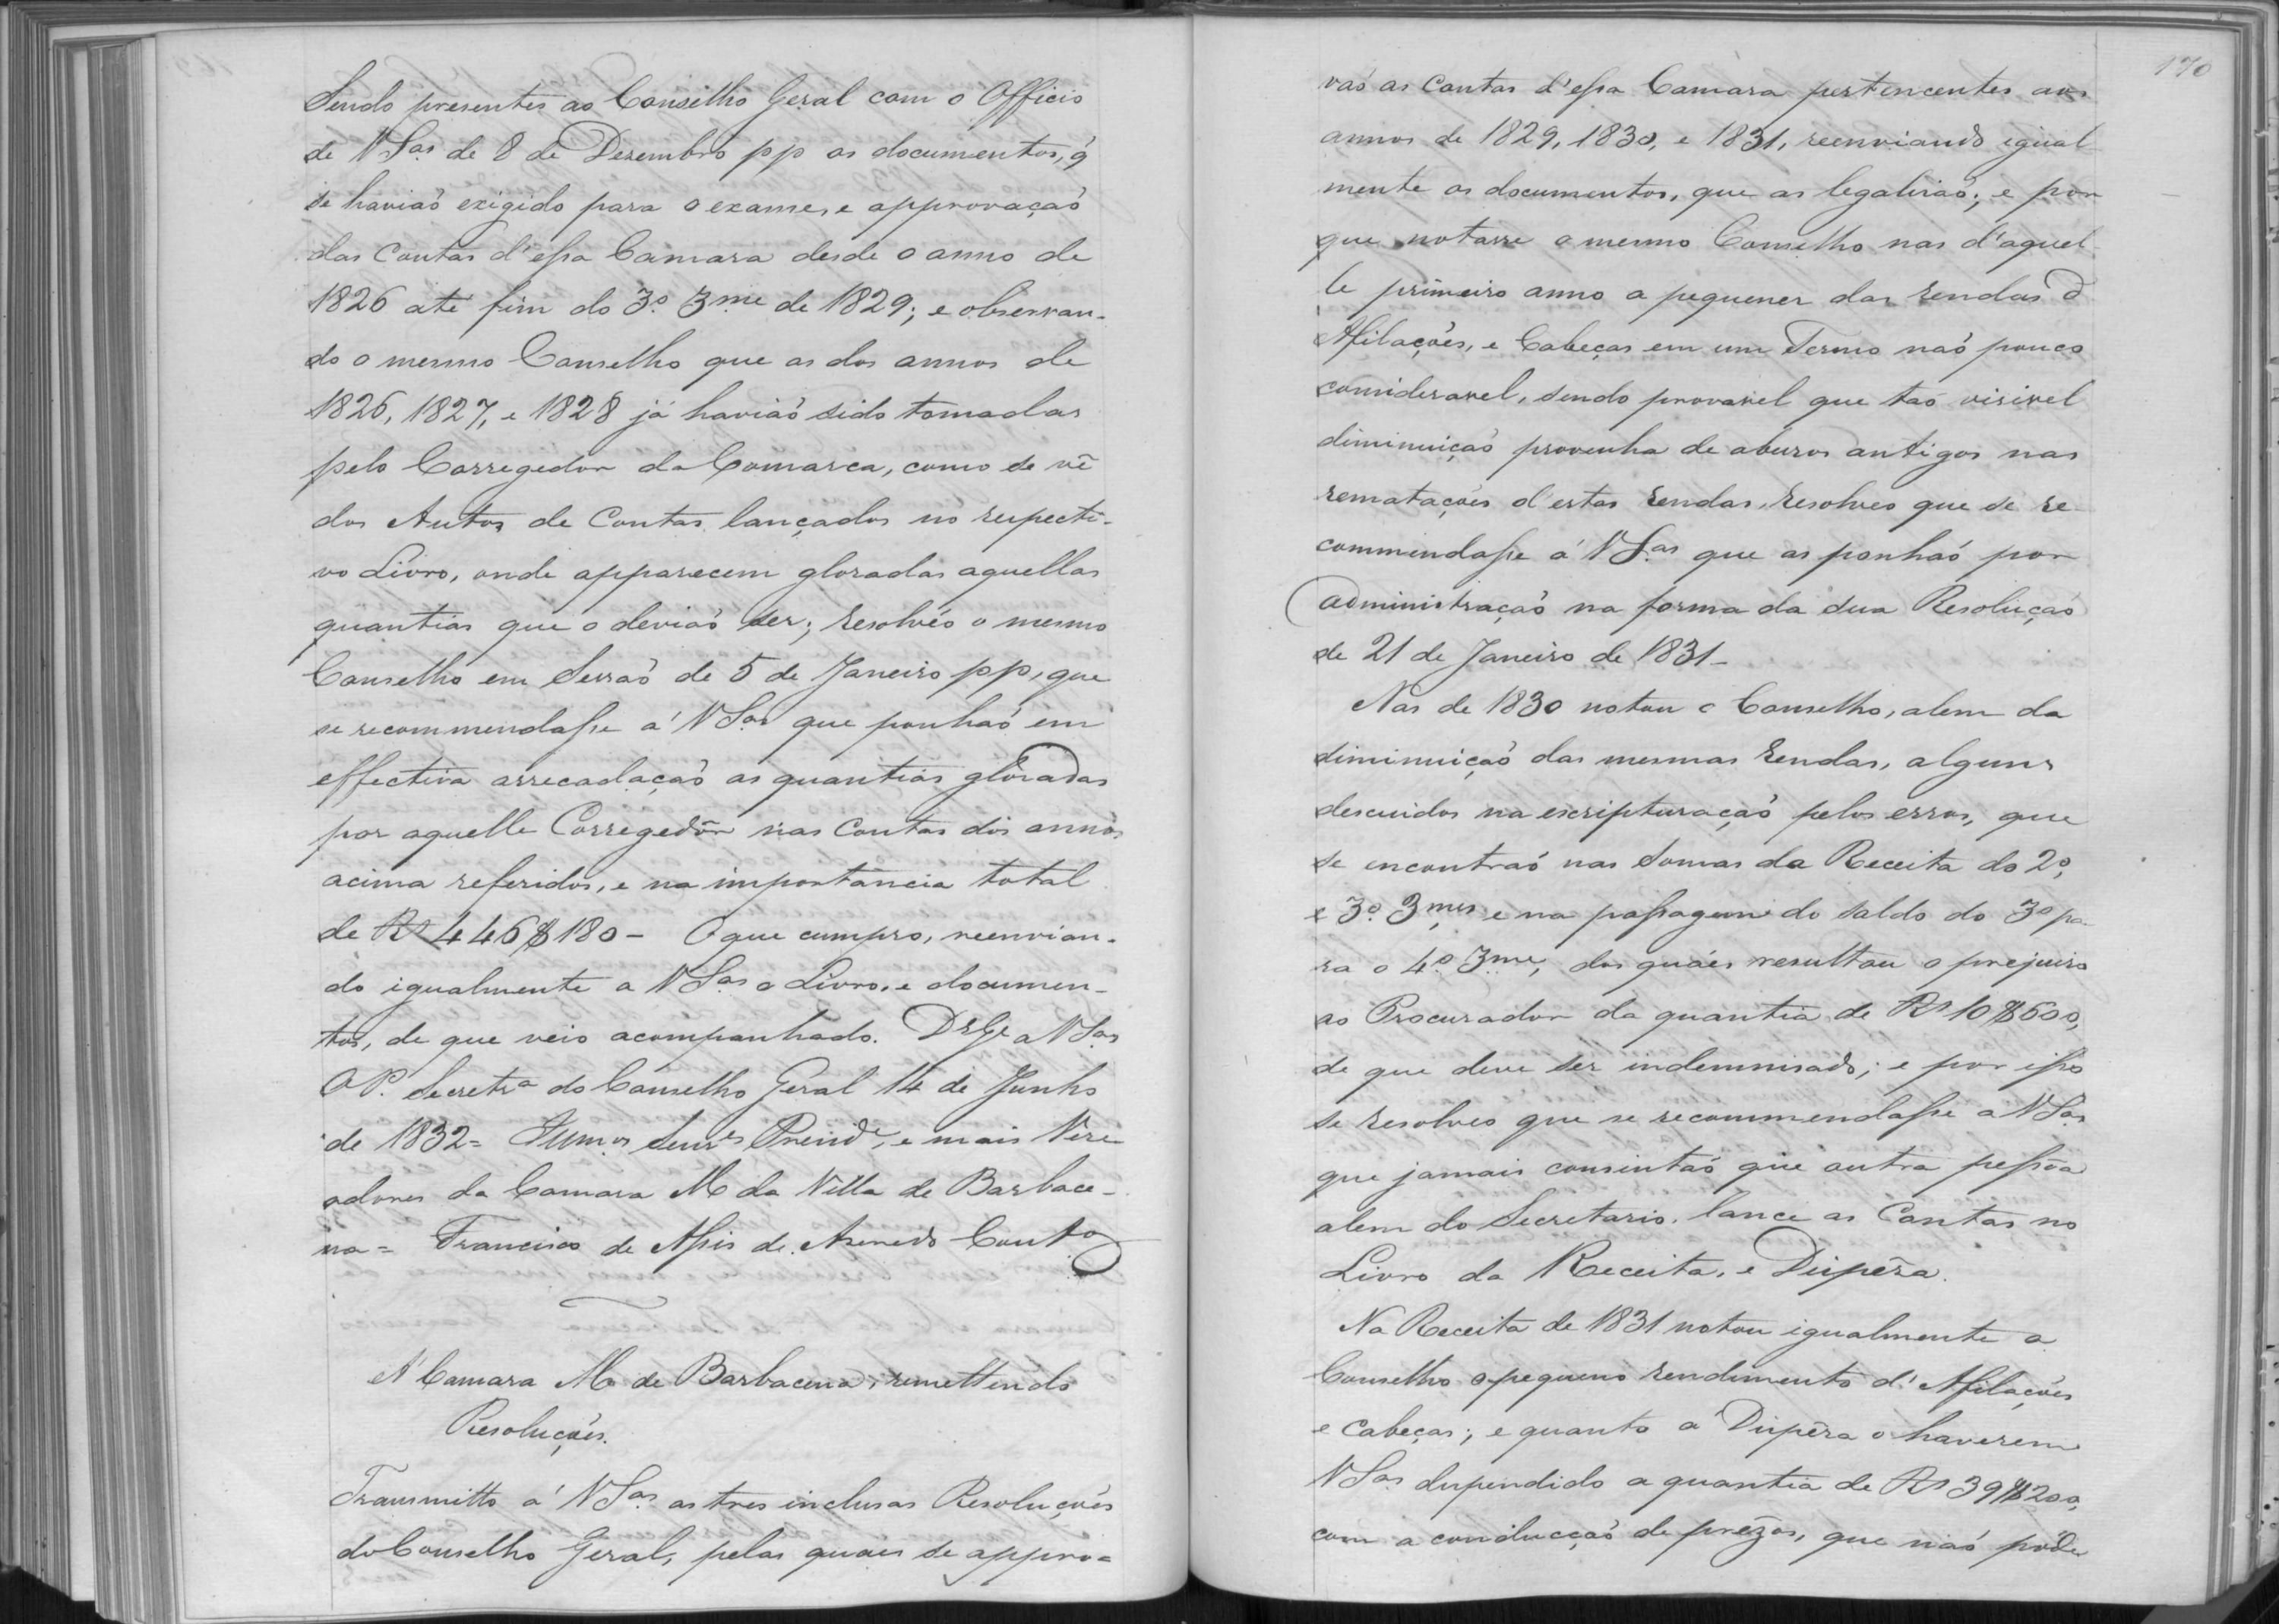 Sendo presentes ao Conselho Geral com o Officio
de VSas de 8 de Dezembro pp os documentos, q̃
se haviaõ exigido para o exame, e approvaçaõ
das Contas d'essa Camara desde o anno de
1826 até fim do 3º 3me de 1829; e observan-
do o mesmo Conselho que as dos annos de
1826, 1827, e 1828 já haviaõ sido tomadas
pelo Corregedor da Comarca, como se vê
dos Autos de Contas lançados no respecti-
vo Livro, onde apparecem glosadas aquellas
quantias que o deviaõ ser; resolvéo o mesmo
Conselho em Sessaõ de 5 de Janeiro pp, que
se recommendasse a' VSas que ponhaõ em
effectiva arrecadaçaõ as quantias glosadas
por aquelle Corregedor nas Contas dos annos
acima referidos, e na importancia total
de Rs 446$180 - O que cumpro, reenvian-
do igualmente a VSas o Livro, e documen-
tos, de que veio acompanhado. Ds Ge a VSas
OP. Secretra do Conselho Geral 14 de Junho
de 1832 = Illmos Senres Preside, e mais Vere
adores da Camara M da Villa de Barbace-
na = Francisco de Assis de Azeredo Couto
A' Camara Ma de Barbacena, remettendo
Resoluções.
Transmitto á VSas as tres inclusas Resoluções
do Conselho Geral, pelas quaes se appro=
170
vaõ as Contas d'essa Camara pertencentes aos
annos de 1829, 1830, e 1831, reenviando igual
mente os documentos, que as legalisaõ; e por
que notasse o mesmo Conselho nas d'aquel
le primeiro anno a pequenez das rendas d
Afilações, e Cabeças em um Termo naõ pouco
consideravel, sendo provavel que taõ visivel
diminuiçaõ provenha de abusos antigos nas
rematações d'estas rendas, resolveo que se re
commendasse á VSas que as ponhaõ por
administraçaõ na forma da sua Resoluçaõ
de 21 de Janeiro de 1831 -
Nas de 1830 notou o Conselho, alem da
diminuiçaõ das mesmas rendas, alguns
descuidos na escripturaçaõ pelos erros, que
se encontraõ nas somas da Receita do 2º,
e 3º 3mes, e na passagem do saldo do 3º pa
ra o 4º 3me, dos quáes resultou o prejuiso
ao Procurador da quantia de Rs 10$600,
de que deve ser indemnisado; e por isso
se resolveo que se recommendasse a VSas
que jamais consintaõ que outra pessôa
alem do Secretario, lance as Contas no
Livro da Receita, e Dispêza.
Na Receita de 1831 notou igualmente o
Conselho o pequeno rendimento d' Afilações
e Cabeças; e quanto a' Dispêza o haverem
VSas dispendido a quantia de Rs 39$200,
com a conducçaõ de prêzos, que naõ póde